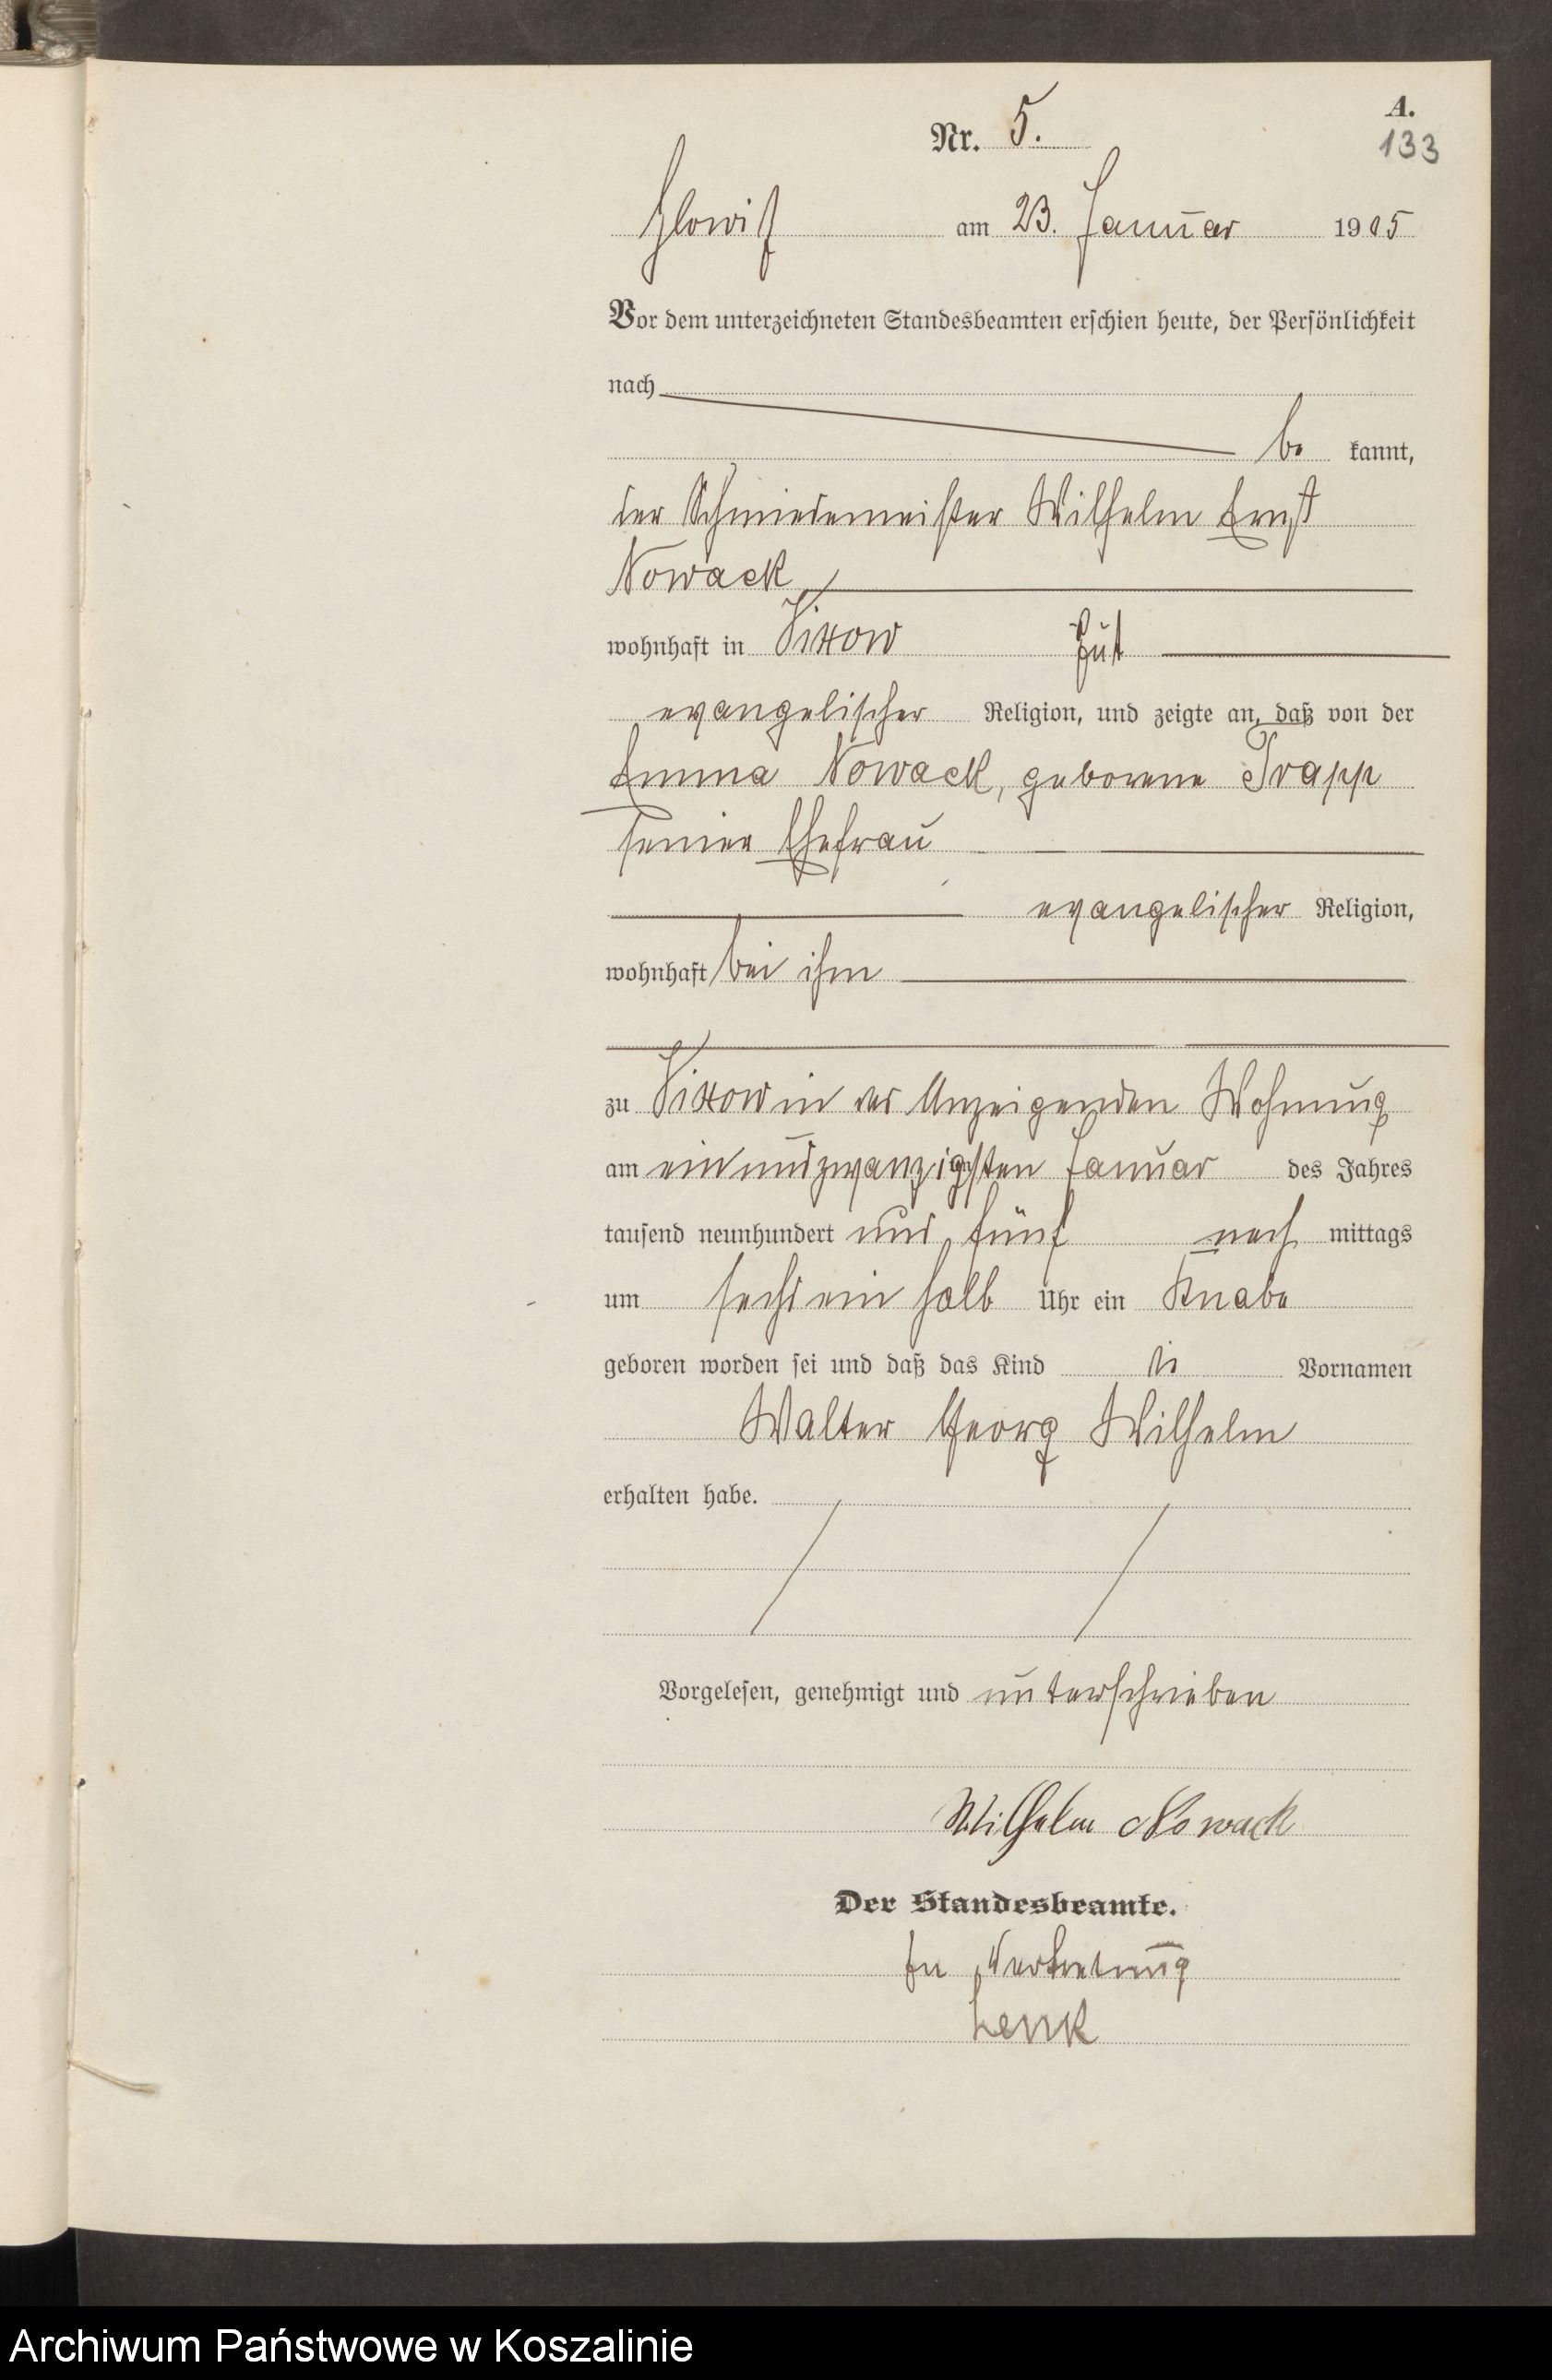 A.
Nr. 5.
133
Glowitz am 23. Januar 1905
Vor dem unterzeichneten Standesbeamten erschien heute, der Persönlichkeit
nach
be kannt,
der Schmiedemeister Wilhelm Ernst
Nowack
wohnhaft in Vixow Gut
evangelischer Religion, und zeigte an, daß von der
Emma Nowack, geborene Trapp
seiner Ehefrau
evangelischer Religion,
wohnhaft bei ihm
zu Vixow in des Anzeigenden Wohnung
am einundzwanzigsten Januar des Jahres
tausend neunhundert und fünf nach mittags
um sechs ein halb Uhr ein Knabe
geboren worden sei und daß das Kind die Vornamen
Walter Georg Wilhelm
erhalten habe.
Vorgelesen, genehmigt und unterschrieben
Wilhelm Nowack
Der Standesbeamte.
In Vertretung
Lenk
Archiwum Państwowe w Koszalinie